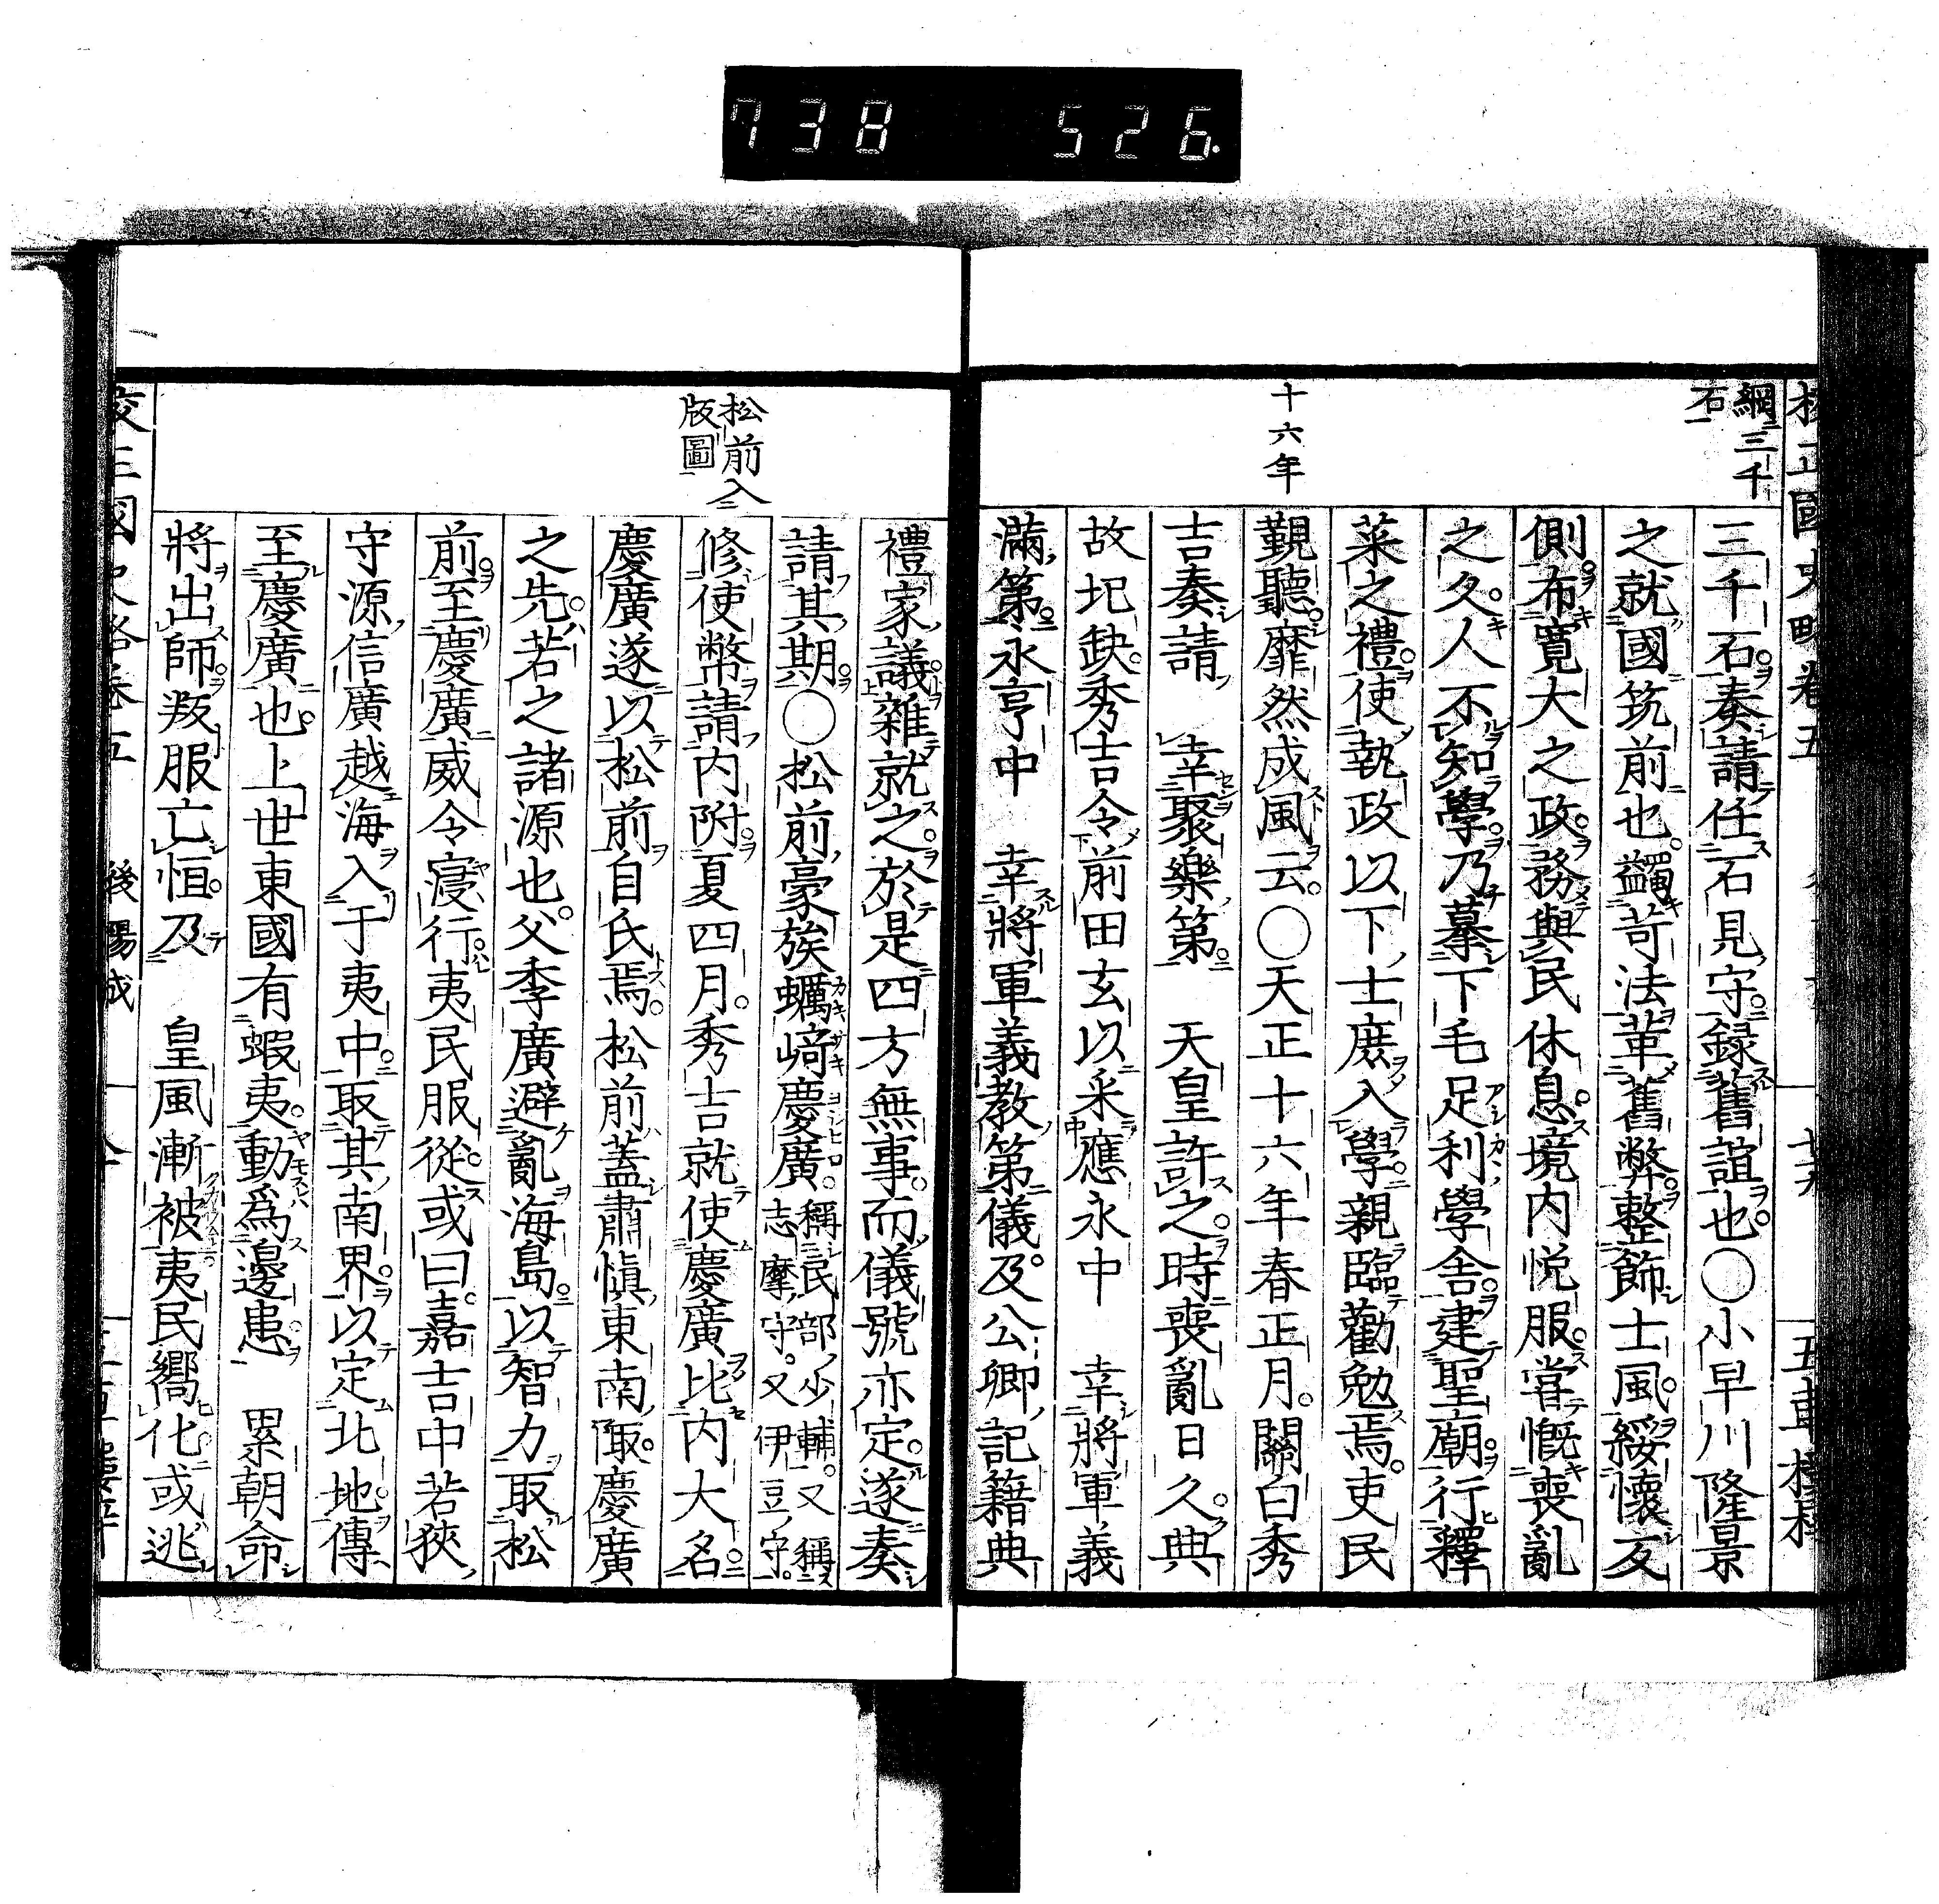 738 526
綱三千
石
三千石奏請任石見守錄舊誼也〇小早川隆景
之就國筑前也蠲苛法革舊弊整飾士風綏懷反
側布寬大之政務與民休息境内悦服嘗慨喪亂
之久人不知學乃摹下毛足利學舎建聖廟行釋
菜之禮使執政以下士庶入學親臨勸勉焉吏民
觀聽靡然成風云〇天正十六年春正月關白秀
十六年
吉奏請 幸聚樂第 天皇許之時喪亂日久典
故圯缺秀吉令前田玄以采應永中 幸將軍義
滿第永享中 幸將軍義教第儀及公卿記籍典
禮家議雜就之於是四方無事而儀號亦定遂奏
請其期〇松前豪族蠣﨑慶廣稱民部少輔又稱
志摩守又伊豆守
松前入
版圖
修使幣請内附夏四月秀吉就使慶廣比内大名
慶廣遂以松前自氏焉松前蓋肅愼東南陬慶廣
之先若之諸源也父季廣避亂海島以智力取松
前至慶廣威令寖行夷民服從或曰嘉吉中若狹
守源信廣越海入于夷中取其南界以定北地傳
至慶廣也上世東國有蝦夷動爲邊患 累朝命
將出師叛服亡恒及 皇風漸被夷民嚮化或逃